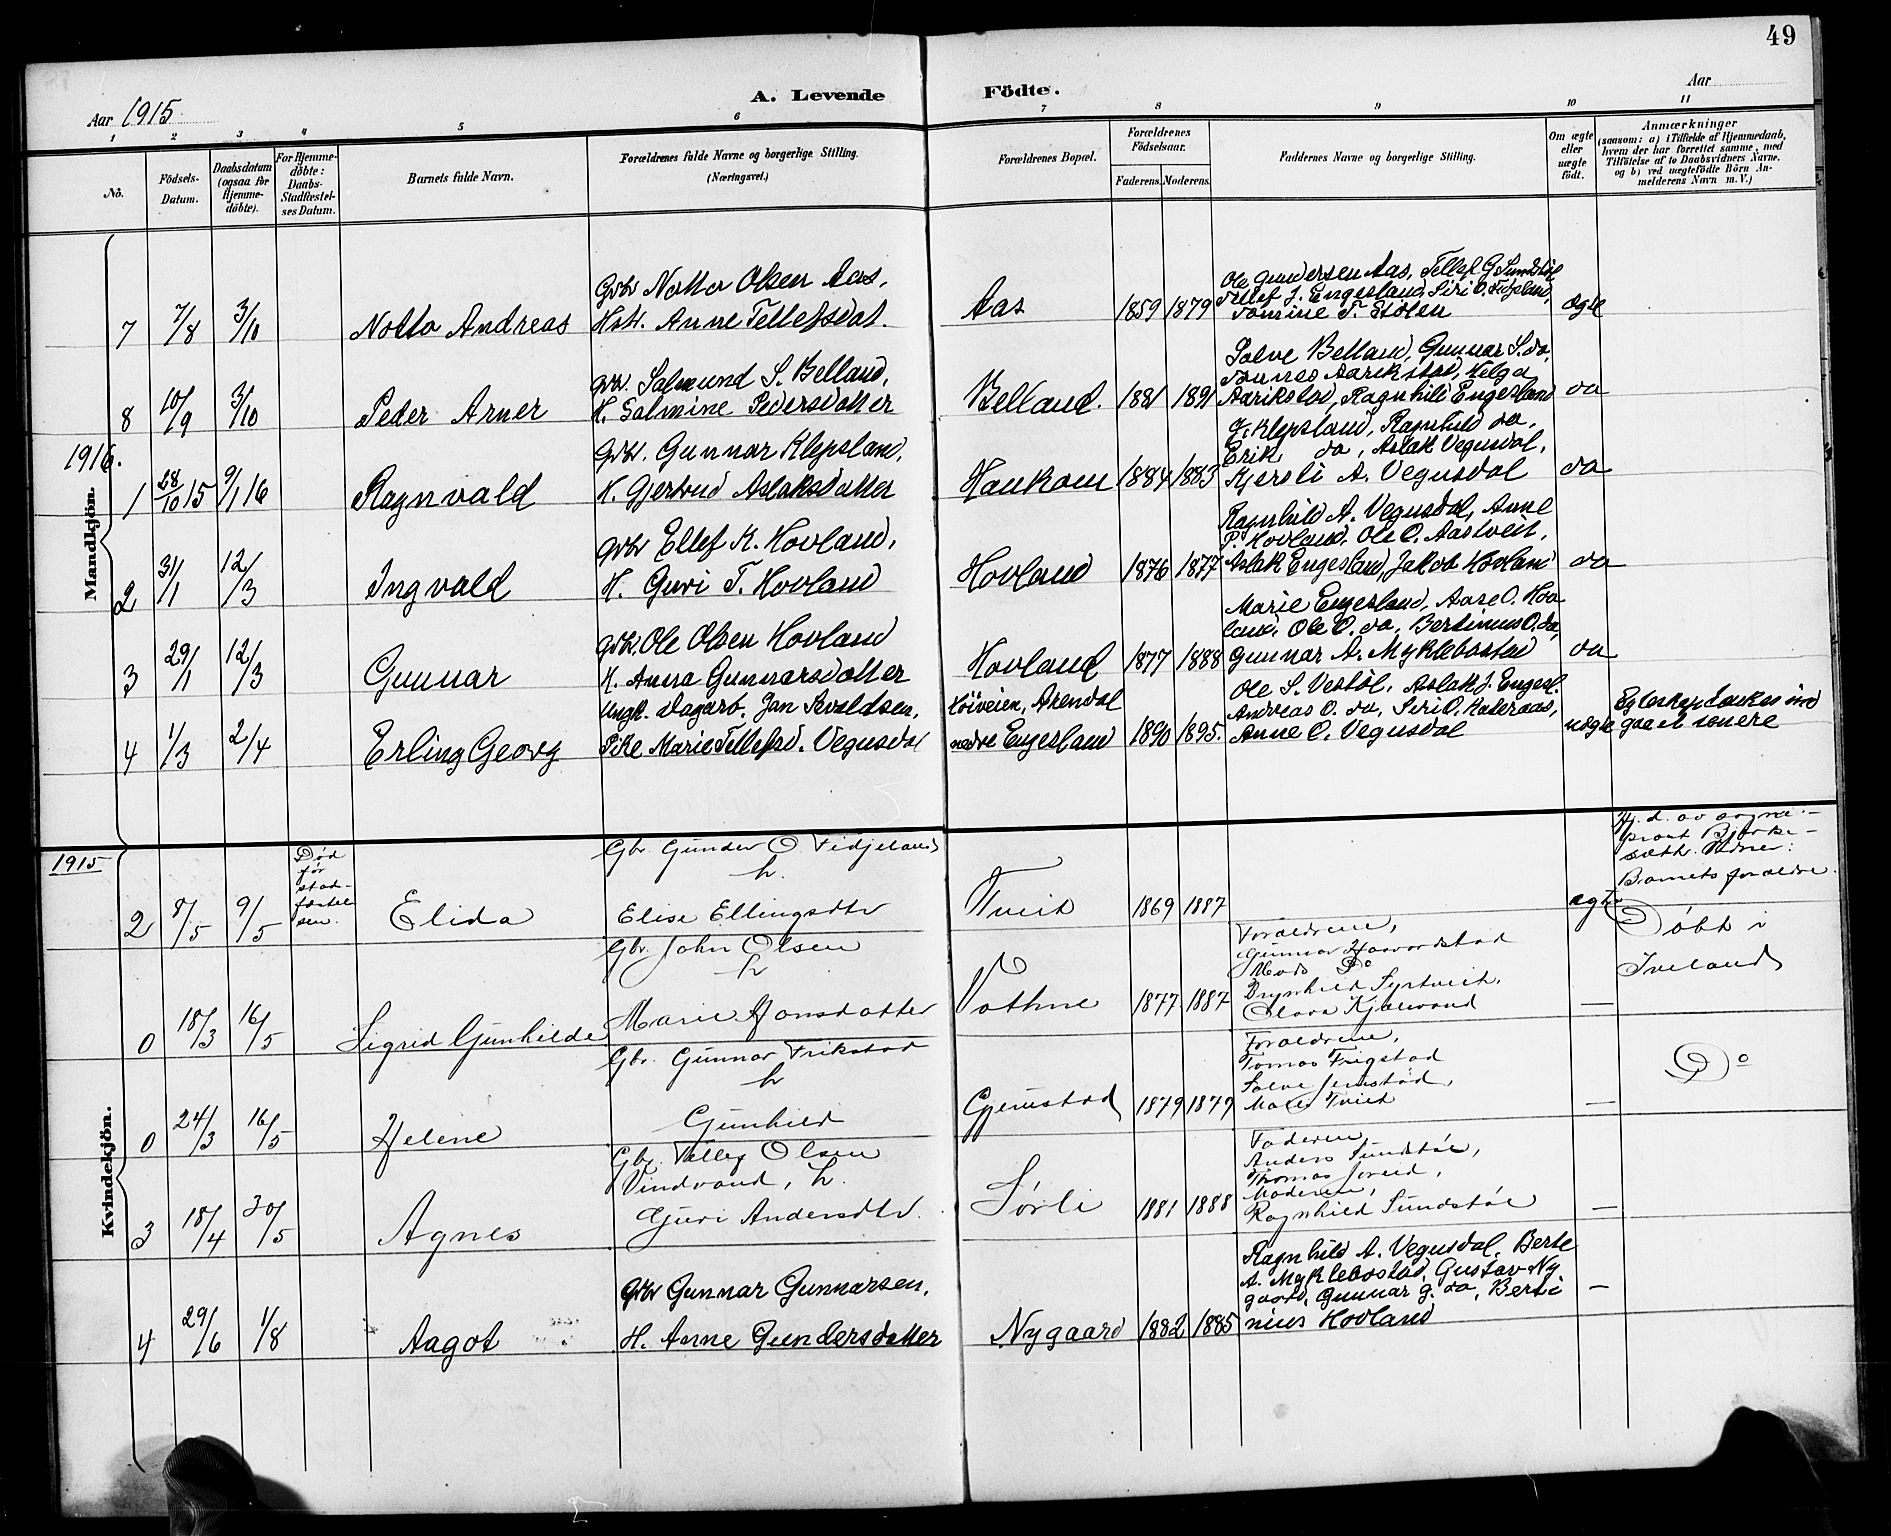 49
Aar 1915.
A. Levende Födte.
Aar
1 2 3 4 5 6 7 8 9 10 11
Nö.
Födsels-Datum.
Daabsdatum (ogsaa for Hjemme-döbte).
For Hjemme-döbte: Daabs-Stadfæstel-ses Datum.
Barnets fulde Navn.
Forældrenes fulde Navne og borgerlige Stilling. (Næringsvei.)
Forældrenes Bopæl.
Forældrenes Födselsaar.
Faderens. Moderens.
Faddernes Navne og borgerlige Stilling.
Om ægte eller uægte födt.
Anmærkninger
(saasom: a) i Tilfælde af Hjemmedaab,
hvem der har forrettet samme, med
Tilföielse af to Daabsvidners Navne.
og b) ved uægtefödte Börn An-
melderens Navn m. V.)
Mandkjön.
7 7/8 3/10 Notto Andreas
Gbr Notto Olsen Aas,
Hstr. Anne Tellefsdat.
Aas 1859 1879
Ole Gundersen Aas, Tellef G. Sundstöl
Tellef J. Engesland, Siri O.
Tomine T. Stölen
ægte
8 10/9 3/10 Peder Arner
Gbr. Salmund S. Belland,
H. Salmine Pedersdatter
Belland. 1881 1891
Salve Belland, Gunnar S. do,
Tønnes Aarikstad, Helga
Aarikstad, Ragnhild Engesland
do
1916.
1 28/10 15 9/1 16 Ragnvald
Gbr. Gunnar Klepsland,
H. Gjertrud Aslaksdatter
Haukom 1884 1883
G. Klepsland, Ragnhild do,
Erik do, Aslak Vegusdal,
Kjersti A. Vegusdal
do
2 31/1 12/3 Ingvald
Gbr Ellef K. Hovland,
H. Guri T. Hovland
Hovland 1876 1877
Ragnhild A. Vegusdal, Anne
P. Hovland, Ole O. Aastveit,
Aslak Engesland, Jakob Hovland
do
3 29/1 12/3 Gunnar
Gbr. Ole Olsen Hovland
H. Anna Gunnarsdatter
Hovland 1877 1888
Marie Engesland, Aase O. Hov
land, Ole O. do, Bertinius O. do,
Gunnar A. Myklebostad
do
4 1/3 2/4 Erling Georg
Ungk. Dagarb. Jan Evaldsen,
Pike Marie Tellefsd. Vegusdal
Höiveien, Arendal
nedre Engesland 1890 1895.
Ole S. Vestöl, Aslak J. Engesl.
Andreas O. do, Siri O. Kateraas,
Anne O. Vegusdal
uægte
Egteskap tænkes ind
gaaet senere
Kvindekjön.
1915
2 8/5 9/5
Död
för
stad-
fæstel
sen.
Elida
Gbr. Gunder O Fidjeland
h.
Elise Ellingsdtr
Tveit 1869 1887
ægte
Hj. d. av sogne-
prest Bjerke-
sæth. Vidner:
Barnets forældre.
0 18/3 16/5 Sigrid Gunhilde
Gbr. John Olsen
h
Marie Jonsdatter
Vathne 1877 1887
Forældrene,
Gunnar Haavardstad
Mads Do
Brynhild Syrtveit,
Olava Kjælevand
—
Döbt i
Iveland
0 24/3 16/5 Helene
Gbr. Gunnar Frikstad
h
Gunhild
Gjerustad 1879 1879
Forældrene,
Tomas Frigstad
Salve Jerustad,
Maren Tveit
—
Do
3 18/4 30/5 Agnes
Gbr. Tellef Olsen
Vindvand, h.
Guri Andersdtr.
Sørli 1881 1888
Faderen,
Anders Sundstöl,
Thomas Joreid,
Moderen,
Ragnhild Sundstöl
—
4 29/6 1/8 Aagot
Gbr Gunnar Gunnarsen,
H. Anne Gundersdatter
Nygaard 1882 1885
Ragnhild A. Vegusdal, Berte
A. Myklebostad, Gustav Ny
gaard, Gunnar G. do, Berti
nius Hovland
—